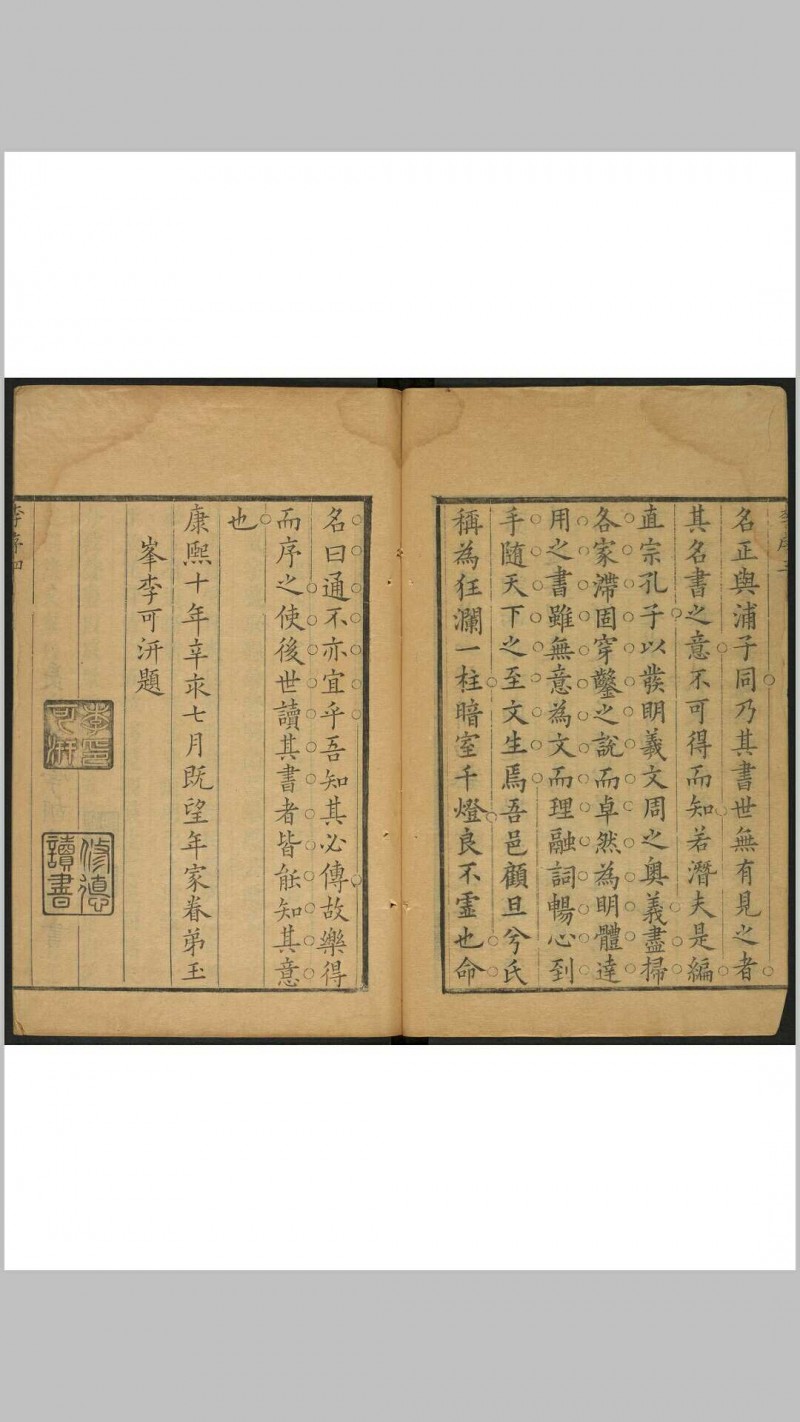 名正與浦子同乃其書世無有見之者
其名書之意不可得而知若潛夫是編
直宗孔子以發明羲文周之奧義盡掃
各家滯固穿鑿之說而卓然為明體達
用之書雖無意為文而理融詞暢心到
手隨天下之至文生焉吾邑顧旦兮氏
稱為狂瀾一柱暗室千燈良不虛也命
名曰通不亦宜乎吾知其必傳故樂得
而序之使後世讀其書者皆能知其意
也
康熙十年辛亥七月既望年家眷弟玉
峯李可汧題
李印可汧
修德讀書
李序四